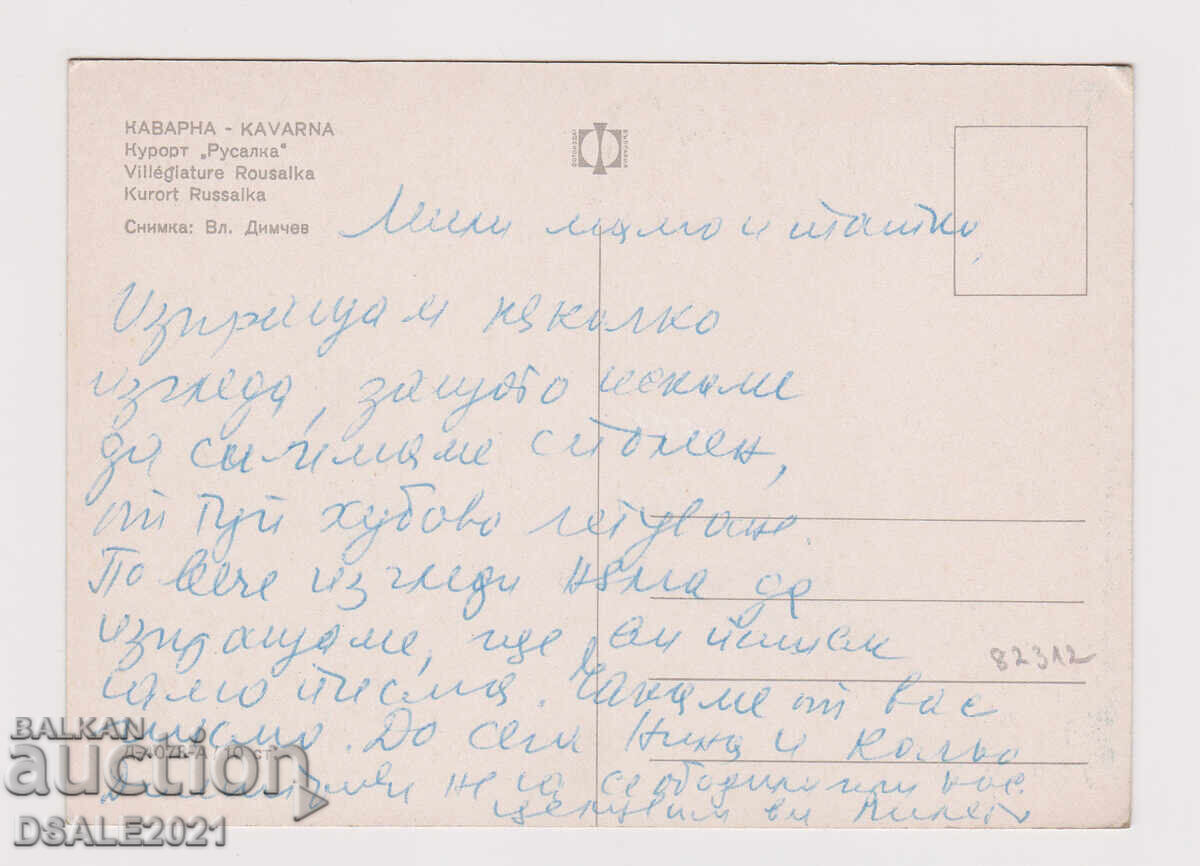 КАВАРНА - KAVARNA
Курорт „Русалка“
Villégiature Rousalka
Kurort Russalka
Снимка: Вл. Димчев
ФОТОИЗДАТ БЪЛГАРИЯ
Мили мамо и татко,
Изпращам няколко
изгледа, защото искаме
да си имаме спомен,
от туй хубаво летуване.
По вече изгледи няма да
изпращаме, ще ви пишем
само писма. Чакаме от вас
писмо. До сега Нина и Кольо
не са се обадили при нас.
целувам ви
82312
BALKAN
auction
DSALE2021